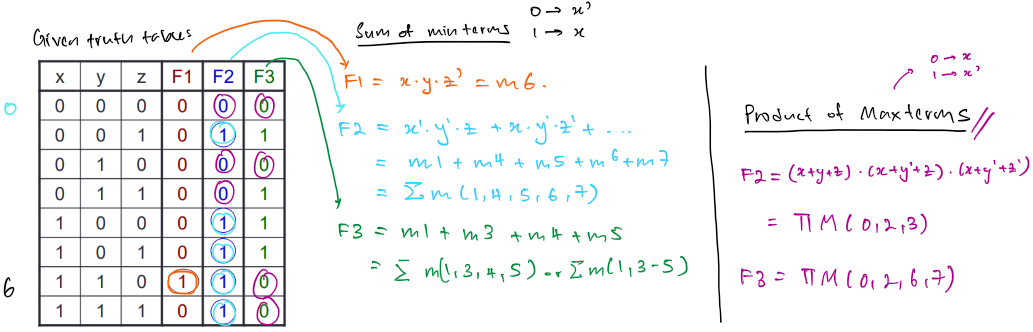 Given truth tables
x y z F1 F2 F3
0 0 0 0 0 0
0 0 1 0 1 1
0 1 0 0 0 0
0 1 1 0 0 1
1 0 0 0 1 1
1 0 1 0 1 1
1 1 0 1 1 0
1 1 1 0 1 0
0
6
Sum of minterms
0 → x'
1 → x
F1 = x·y·z' = m6.
F2 = x'·y'·z + x·y'·z' + ...
= m1 + m4 + m5 + m6 + m7
= Σm(1,4,5,6,7)
F3 = m1 + m3 + m4 + m5
= Σ m(1,3,4,5) or Σm(1,3-5)
0 → x
1 → x'
Product of Maxterms
F2 = (x+y+z)·(x+y'+z)·(x+y'+z')
= ΠM(0,2,3)
F3 = ΠM(0,2,6,7)